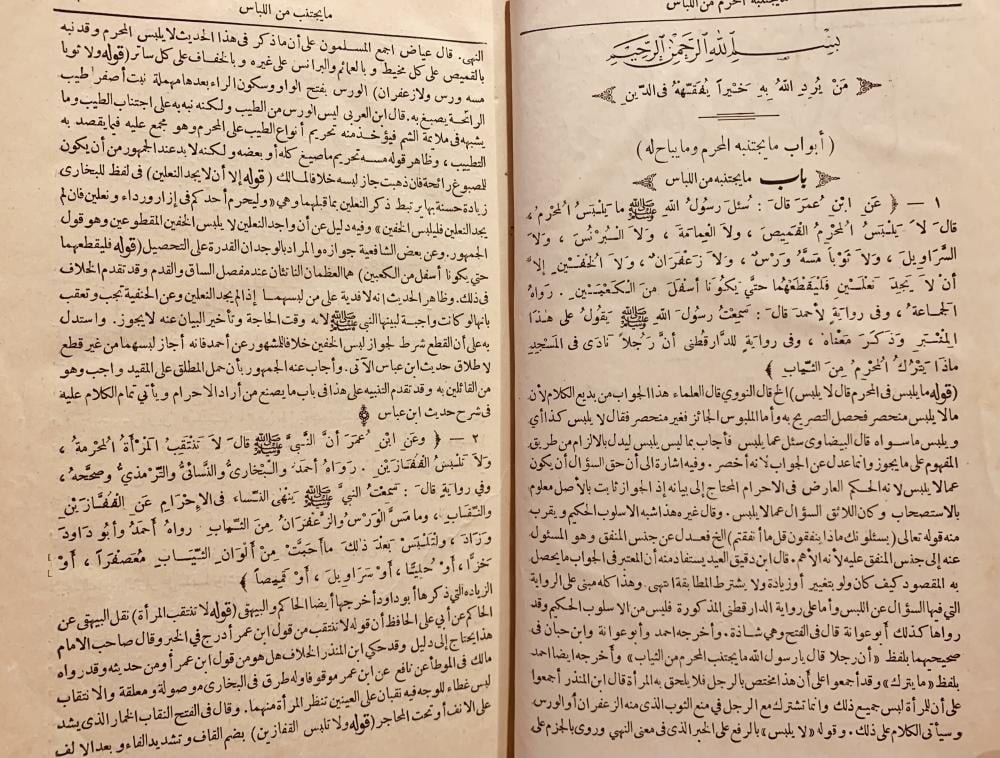 ما يجتنبه المحرم من اللباس
بِسْمِ اللهِ الرَّحْمٰنِ الرَّحِيمِ
مَنْ يُرِدِ اللهُ بِهِ خَيْراً يُفَقِّهْهُ فِى الدِّينِ
( أبواب ما يجتنبه المحرم وما يباح له )
باب ما يجتنبه من اللباس
١ — ﴿ عَنِ ابْنِ عُمَرَ قَالَ : سُئِلَ رَسُولُ اللهِ ﷺ مَا يَلْبَسُ الْمُحْرِمُ ،
قَالَ لاَ يَلْبَسُ الْمُحْرِمُ الْقَمِيصَ ، ولاَ الْعِمَامَةَ ، وَلاَ الْبُرْنُسَ ، وَلاَ
السَّرَاوِيلَ ، وَلاَ ثَوْباً مَسَّهُ وَرْسٌ ، وَلاَ زَعْفَرَانٌ ، وَلاَ الْخُفَّيْنِ إِلاَّ
أَنْ لاَ يَجِدَ نَعْلَيْنِ فَلْيَقْطَعْهُمَا حَتَّى يَكُونَا أَسْفَلَ مِنَ الْكَعْبَيْنِ . رَوَاهُ
الْجَمَاعَةُ ، وفى رِوَايَةٍ لِأَحمدَ قالَ : سَمِعْتُ رسُولَ اللهِ ﷺ يَقُولُ عَلَى هٰذَا
الْمِنْبَرِ وَذَكَرَ مَعْنَاهُ ، وفى رِوَايَةٍ للدَّارقُطْنِى أَنَّ رَجُلاً نَادَى فى الْمَسْجِدِ
مَاذَا يَتْرُكُ الْمُحْرِمُ مِنَ الثِّيَابِ ﴾
(قوله ما يلبس فى المحرم قال لا يلبس) الخ قال النووى قال العلماء هذا الجواب من بديع الكلام لأن
مالا يلبس منحصر فحصل التصريح به وأما الملبوس الجائز فغير منحصر فقال لا يلبس كذا أى
ويلبس ماسواه قال البيضاوى سئل عما يلبس فأجاب بما ليس يلبس ليدل بالالزام من طريق
المفهوم على ما يجوز وانما عدل عن الجواب لانه أخصر . وفيه اشارة الى أن حق السؤال أن يكون
عما لا يلبس لانه الحكم العارض فى الاحرام المحتاج إلى بيانه إذ الجواز ثابت بالأصل معلوم
بالاستصحاب وكان اللائق السؤال عما لا يلبس . وقال غيره هذا شبه الاسلوب الحكيم ويقرب
منه قوله تعالى (يسئلونك ماذا ينفقون قل ما أنفقتم) الخ فعدل عن جنس المنفق وهو المسؤل
عنه إلى جنس المنفق عليه لأنه الأهم . قال ابن دقيق العيد يستفاد منه أن المعتبر فى الجواب ما يحصل
به المقصود كيف كان ولو بتغيير أو زيادة ولا يشترط المطابقة انتهى . وهذا كله مبنى على الرواية
التى فيها السؤال عن اللبس وأما على رواية الدارقطنى المذكورة فليس من الاسلوب الحكيم وقد
رواها كذلك أبو عوانة قال فى الفتح وهى شاذة . وأخرجه احمد وأبو عوانة وابن حبان فى
صحيحيهما بلفظ « أن رجلا قال يا رسول الله ما يجتنب المحرم من الثياب » وأخرجه ايضا احمد
بلفظ « ما يترك » وقد أجمعوا على أن هذا مختص بالرجل فلا يلحق به المرأة قال ابن المنذر أجمعوا
على أن للمرأة لبس جميع ذلك وانما تشترك مع الرجل فى منع الثوب الذى مسه الزعفران أو الورس
وسيأتى الكلام على ذلك . وقوله « لا يلبس » بالرفع على الخبر الذى فى معنى النهى وروى بالجزم على
ما يجتنب من اللباس
النهى . قال عياض اجمع المسلمون على أن ما ذكر فى هذا الحديث لا يلبس المحرم وقد نبه
بالقميص على كل مخيط وبالعمائم والبرانس على غيره وبالخفاف على كل ساتر (قوله ولا ثوبا
مسه ورس ولا زعفران) الورس بفتح الواو وسكون الراء بعدها مهملة نبت أصفر طيب
الرائحة يصبغ به . قال ابن العربى ليس الورس من الطيب ولكنه نبه به على اجتناب الطيب وما
يشبهه فى ملايمة الشم فيؤخذ منه تحريم أنواع الطيب على المحرم وهو مجمع عليه فيما يقصد به
التطيب ، وظاهر قوله مسه تحريم ما صبغ كله أو بعضه ولكنه لابد عند الجمهور من أن يكون
للصبوغ رائحة فان ذهبت جاز لبسه خلافا لمالك (قوله إلا أن لا يجد النعلين) فى لفظ للبخارى
زيادة حسنة بها يرتبط ذكر النعلين بما قبلهما وهى « وليحرم أحدكم فى إزار ورداء ونعلين فان لم
يجد النعلين فليلبس الخفين » وفيه دليل عن أن واجد النعلين لا يلبس الخفين المقطوعين وهو قول
الجمهور . وعن بعض الشافعية جوازه والمراد بالوجدان القدرة على التحصيل (قوله فليقطعهما
حتى يكونا أسفل من الكعبين) هما العظمان الناتئان عند مفصل الساق والقدم وقد تقدم الخلاف
فى ذلك . وظاهر الحديث انه لا فدية على من لبسهما إذا لم يجد النعلين وعن الحنفية تجب وتعقب
بانها لو كانت واجبة لبينها النبى ﷺ لانه وقت الحاجة وتأخير البيان عنه لا يجوز . واستدل
به على أن القطع شرط لجواز لبس الخفين خلافا للمشهور عن احمد فانه أجاز لبسهما من غير قطع
لاطلاق حديث ابن عباس الآتى . وأجاب عنه الجمهور بأن حمل المطلق على المقيد واجب وهو
من القائلين به وقد تقدم التنبيه على هذا فى باب ما يصنع من أراد الاحرام ويأتى تمام الكلام عليه
فى شرح حديث ابن عباس
٢ — ﴿ وعَنِ ابْنِ عُمَرَ أَنَّ النَّبِىَّ ﷺ قَالَ لاَ تَنْتَقِبُ الْمَرْأَةُ الْمُحْرِمَةُ ،
وَلاَ تَلْبَسُ الْقُفَّازَيْنِ . رَوَاهُ أَحمدُ والْبُخَارِىُّ والنَّسَائِىُّ والتِّرْمِذِىُّ وصَحَّحَهُ ،
وفِي رِوَايَةٍ قالَ : سَمِعْتُ النَّبِيَّ ﷺ يَنْهَى النِّسَاءَ فِى الإِحْرَامِ عَنِ الْقُفَّازَيْنِ
والنِّقَابِ ، ومَا مَسَّ الْوَرْسُ والزَّعْفَرَانُ مِنَ الثِّيَابِ رَوَاهُ أَحْمَدُ وَأَبُو دَاوُدَ
وَزَادَ ، ولْتَلْبَسْ بَعْدَ ذَلِكَ مَا أَحَبَّتْ مِنْ أَلْوَانِ الثِّيَابِ مُعَصْفَراً ، أَوْ
خَزًّا ، أَوْ حُلِيًّا ، أَوْ سَرَاوِيلَ ، أَوْ قَمِيصاً ﴾
الزيادة التى ذكرها أبو داود أخرجها أيضا الحاكم والبيهقى (قوله لا تنتقب المرأة) نقل البيهقى عن
الحاكم عن أبى على الحافظ أن قوله لا تنتقب من قول ابن عمر أدرج فى الخبر وقال صاحب الامام
هذا يحتاج إلى دليل وقد حكى ابن المنذر الخلاف هل هو من قول ابن عمر أو من حديثه وقد رواه
مالك فى الموطأ عن نافع عن ابن عمر موقوفا وله طرق فى البخارى موصولة ومعلقة والانتقاب
لبس غطاء للوجه فيه نقبان على العينين تنظر المرأة منهما . وقال فى الفتح النقاب الخمار الذى يشد
على الانف أو تحت المحاجر (قوله ولا تلبس القفازين) بضم القاف وتشديد الفاء وبعد الالف